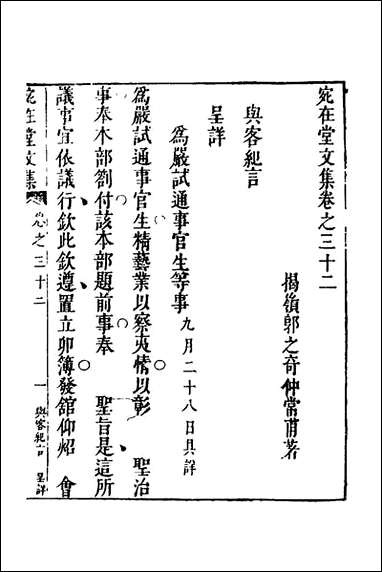 宛在堂文集卷之三十二
揭嶺郭之奇仲常甫著
與客紀言
呈詳
為嚴試通事官生等事九月二十八日具詳
為嚴試通事官生精藝業以察夷情以彰　聖治
事奉本部劄付該本部題前事奉　聖旨是這所
議事宜依議行欽此欽遵置立卯簿發舘仰炤　會
宛在堂文集
卷之三十二
一
與客紀言　呈詳